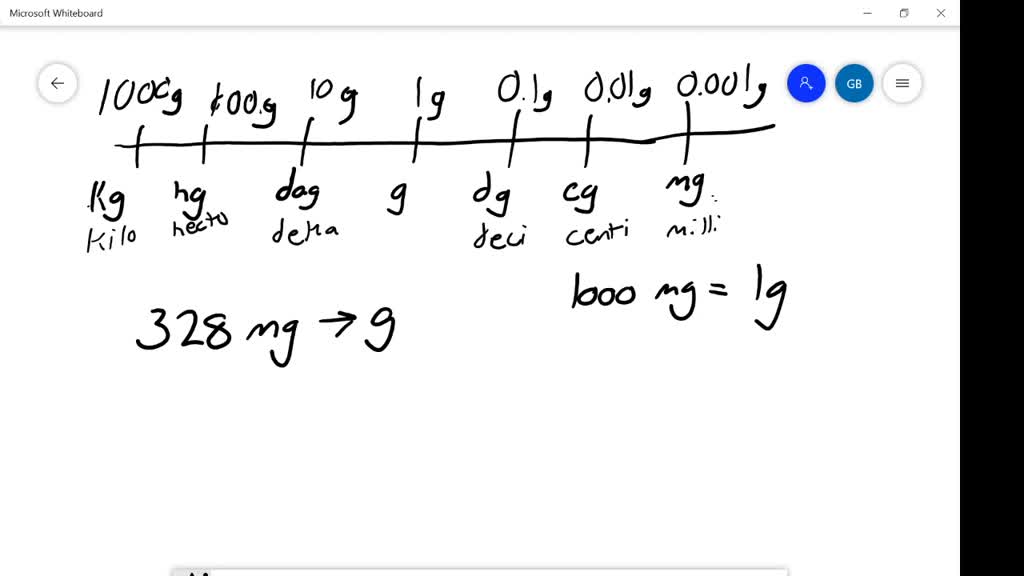 Microsoft Whiteboard
1000g 100g 10g 1g 0.1g 0.01g 0.001g
GB
Kg hg dag g dg cg mg
Kilo hecto deka deci centi milli
1000 mg = 1g
328 mg → g